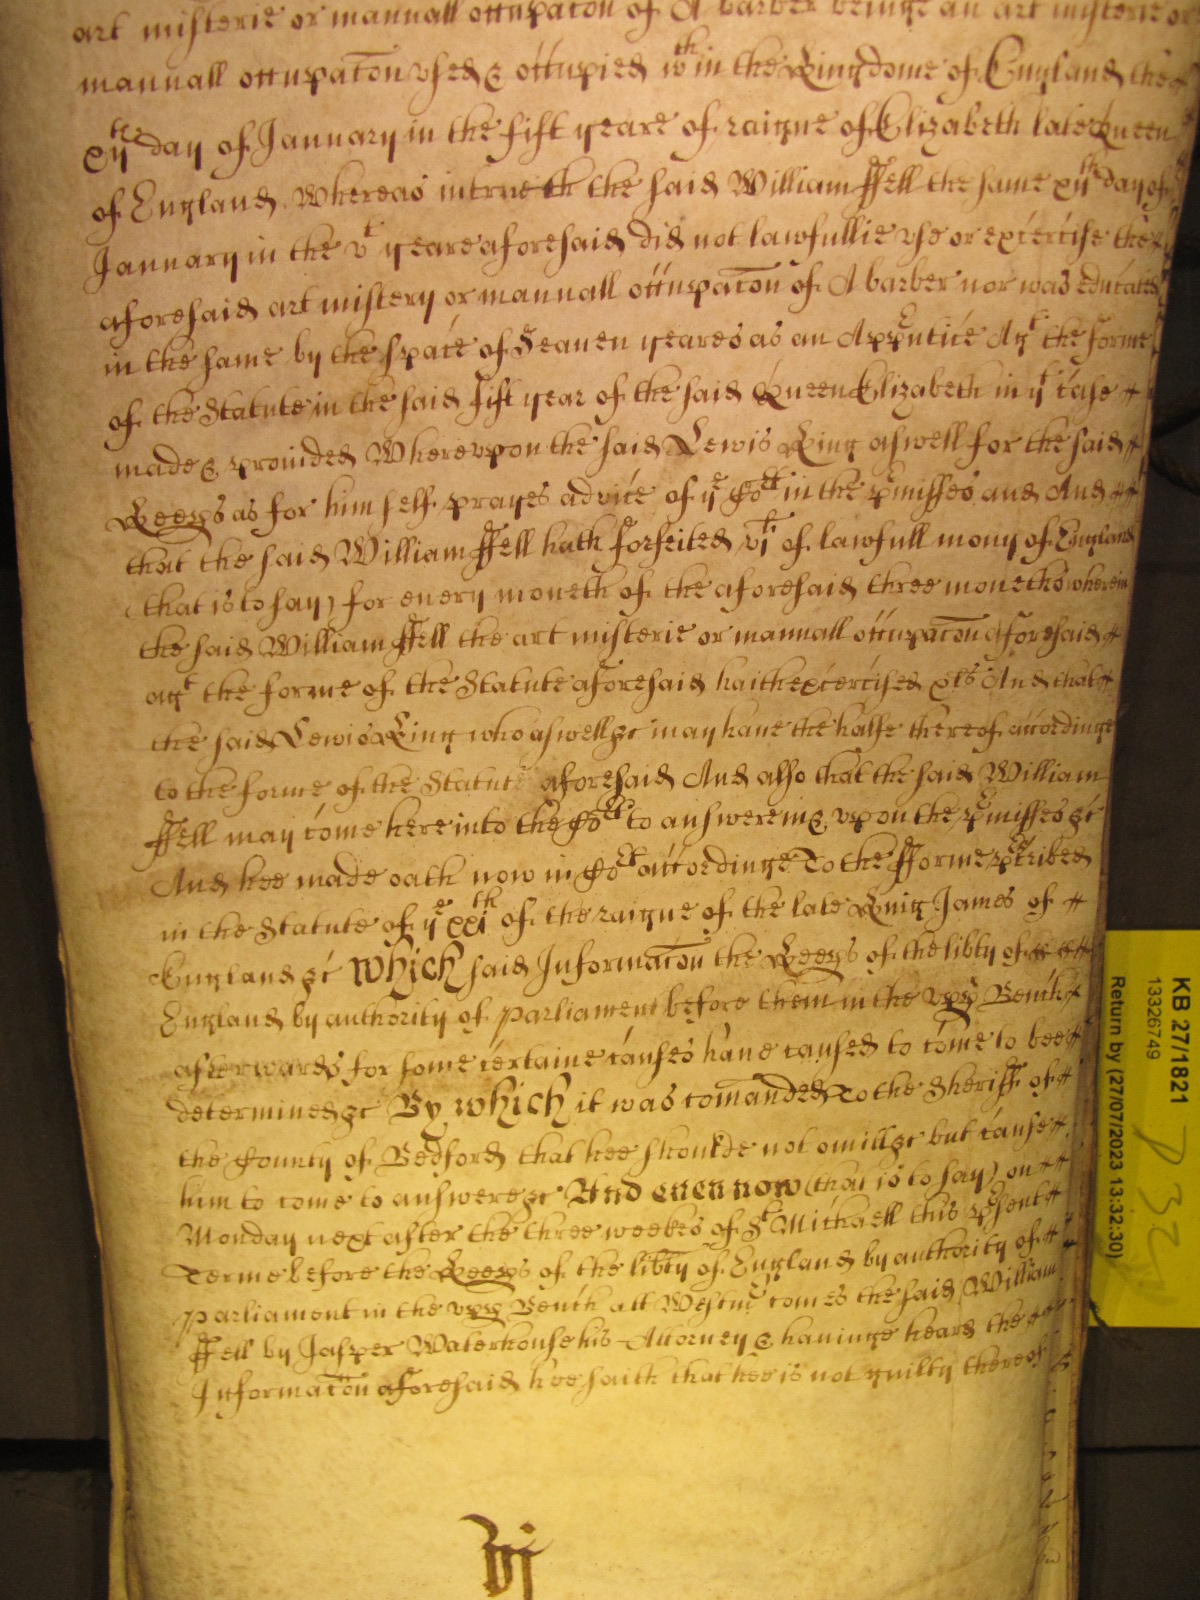 art misterie or manuall occupac̄on of A barber beinge an art misterie or
manuall occupac̄on vsed & occupied wth in the Kingdome of England the
xijth day of January in the fift yeare of raigne of Elizabeth late Queen
of England Whereas in trueth the said William ffell the same xijth day of
January in the vt yeare aforesaid did not lawfullie vse or excercise the
aforesaid art mistery or manuall occupac̄on of A barber nor was educated
in the same by the space of Seauen yeares as an Apprntice Agt the forme
of the Statute in the said fift year of the said Queen Elizabeth in yt case
made & prouided Wherevpon the said Lewis King aswell for the said
Keeps as for him self prayes advice of ye Cort in the prmisses and And
that the said William ffell hath forfeited vjli of lawfull mony of England
(that is to say) for euery moneth of the aforesaid three moneths wherein
the said William ffell the art misterie or manuall occupac̄on aforesaid
agt the forme of the Statute aforesaid haith excercised xls And that
the said Lewis King who aswell &c may haue the halfe thereof accordinge
to the forme of the Statute aforesaid And also that the said William
ffell may come here into the Cort to answere in & vpon the prmisses &c
And hee made oath now in Cort accordinge To the fforme prscribed
in the Statute of ye xxith of the raigne of the late King James of
England &c Which said Informac̄on the Keeps of the libty of
England by authority of parliament before them in the vpp Bench
afterwards for some certaine causes haue caused to come to bee
determined &c By which it was com̄anded To the Sheriff of
the County of Bedford that hee shoulde not omitt &c but cause
him to come to answere &c And euen now (that is to say) on
Monday next after the three weekes of St Michaell this prsent
Terme before the Keeps of the libty of England by authority of
parliament in the vpp Bench att Westmr comes the said William
ffell by Jasper Waterhouse his Attorney & hauinge heard the
Informac̄on aforesaid hee saith that hee is not guilty thereof
KB 27/1821
13326749
Return by (27/07/2023 13:32:30)